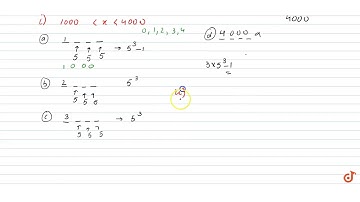 i) 1000 < x < 4000
4000
0, 1, 2, 3, 4
(a) 1 _ _ _ → 5³-1
5 5 5
1 0 0 0
(d) 4 0 0 0 a
3×5³-1
=
(b) 2 _ _ _ 5³
5 5 5
(c) 3 _ _ _ → 5³
5 5 5